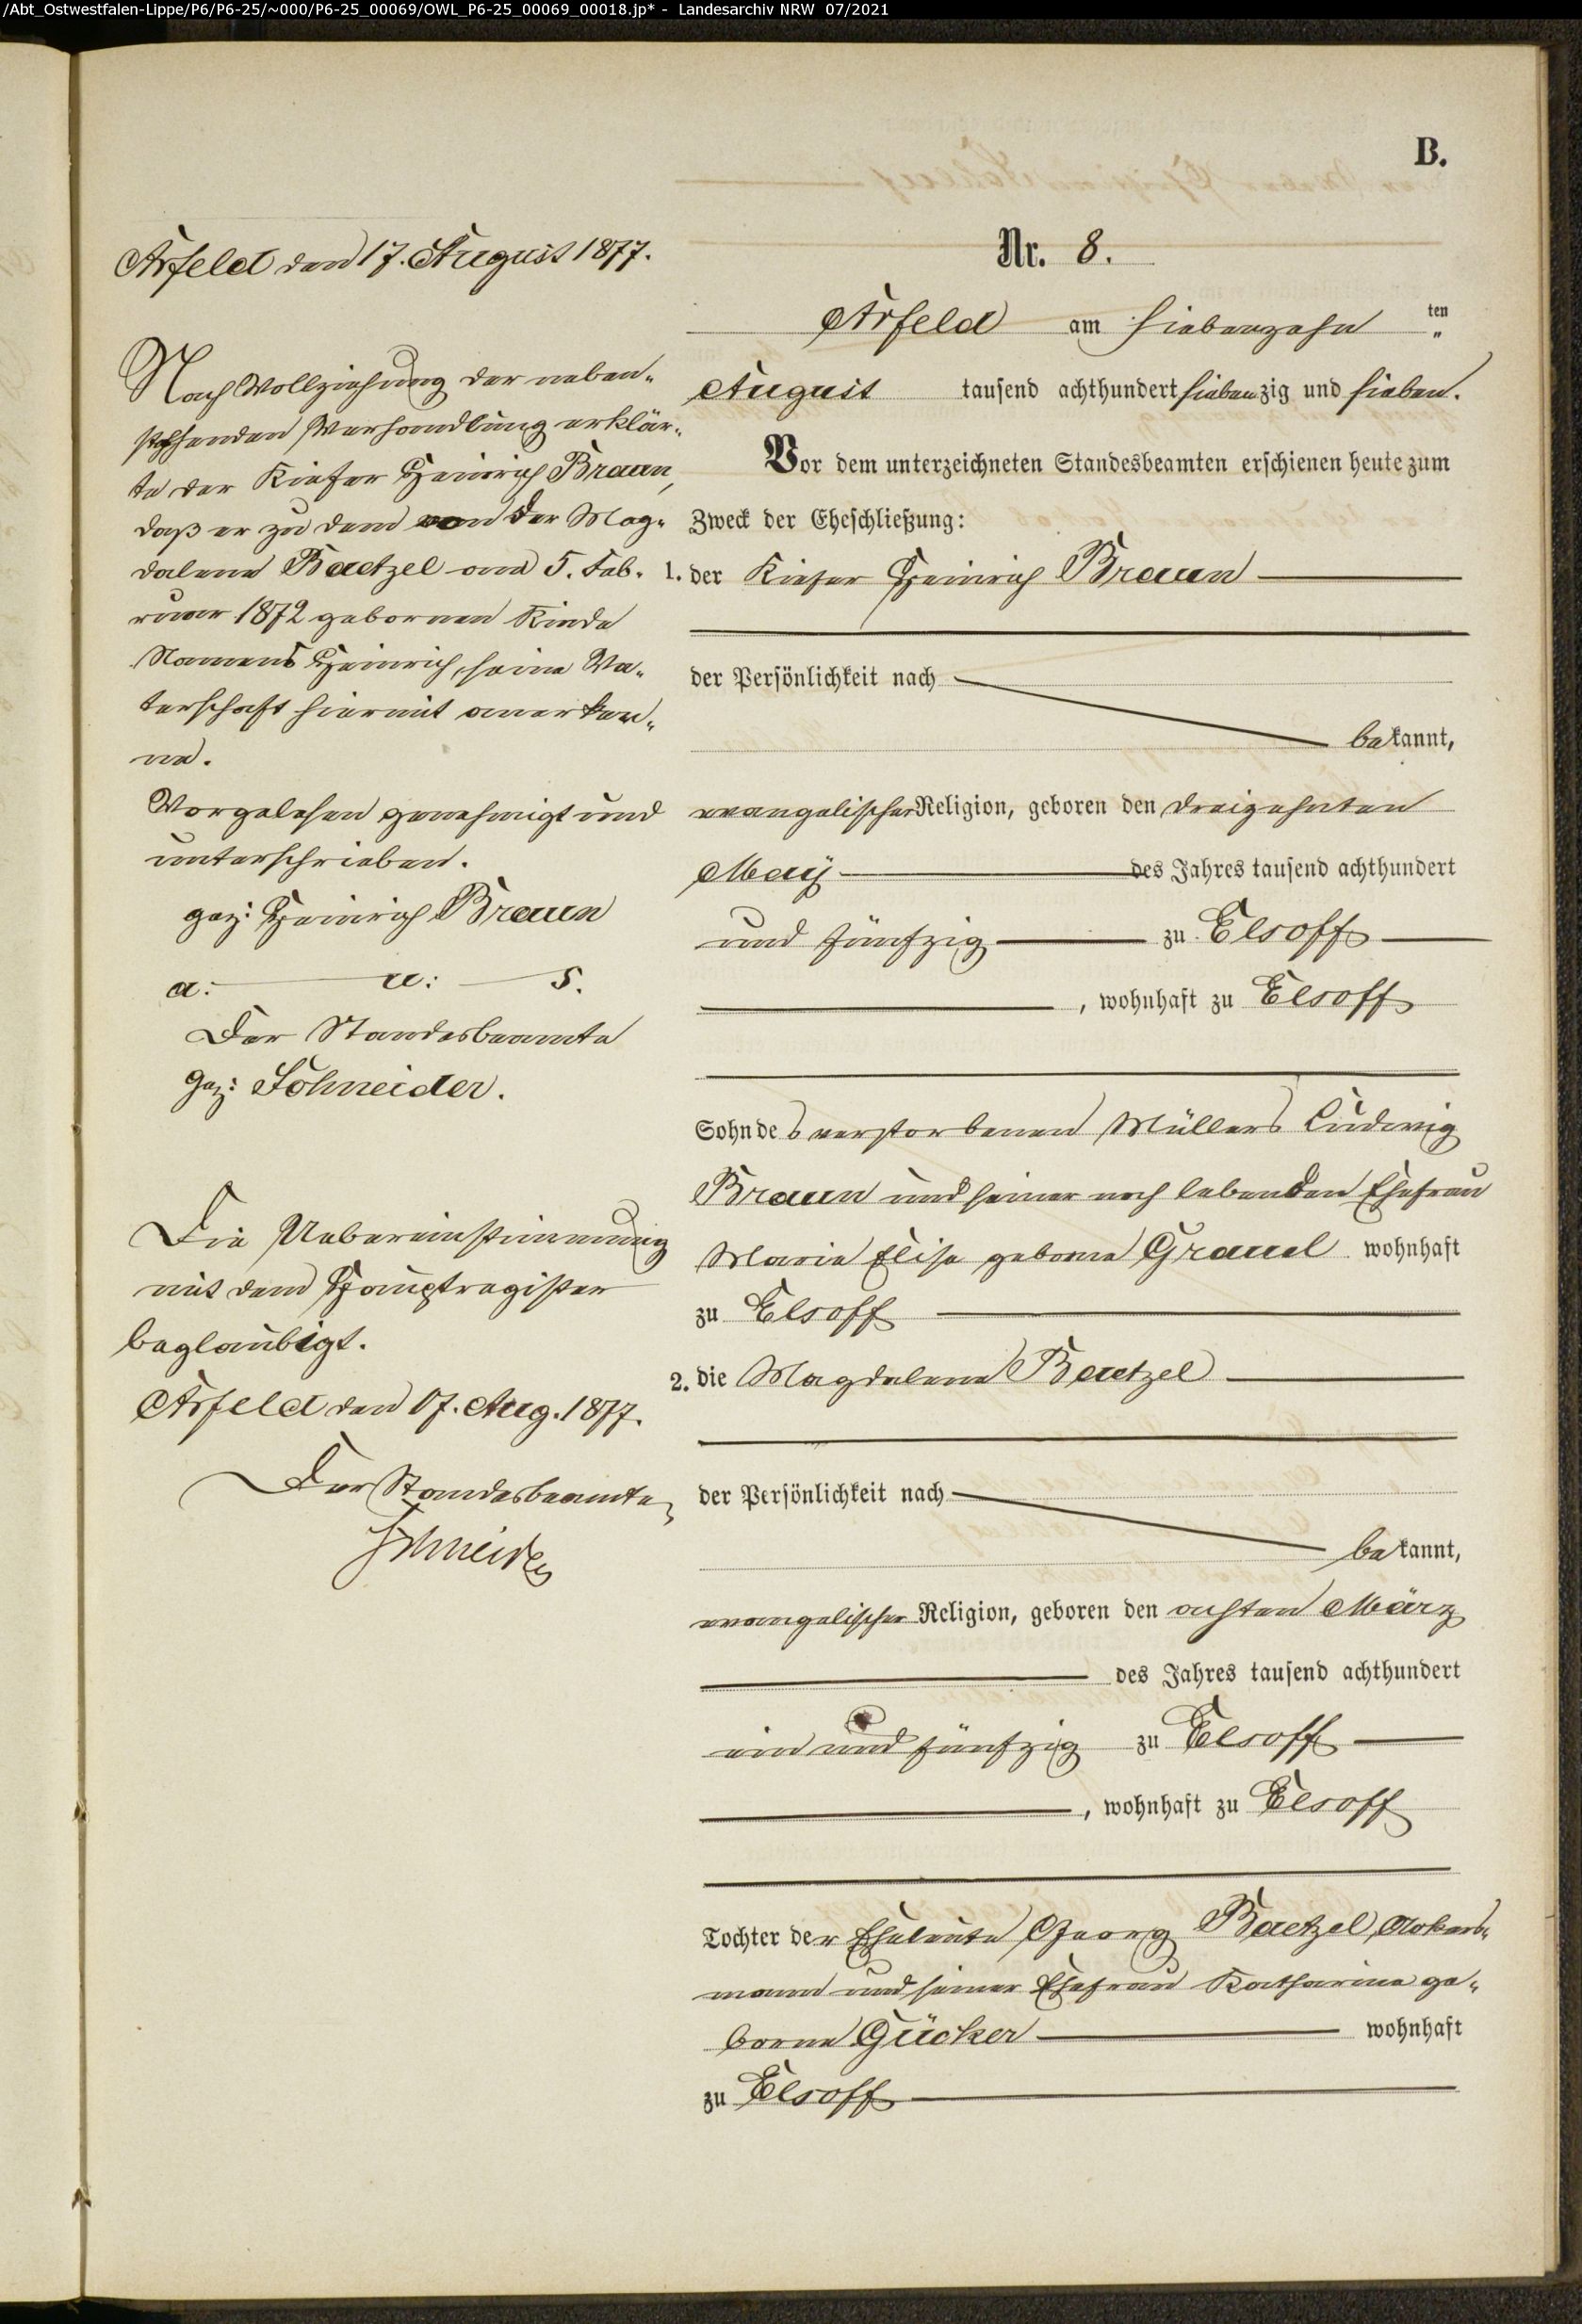 /Abt_Ostwestfalen-Lippe/P6/P6-25/~000/P6-25_00069/OWL_P6-25_00069_00018.jp* - Landesarchiv NRW 07/2021
B.
Arfeld den 17. August 1877.
Nach Vollziehung der neben-
stehenden Verhandlung erklär-
te der Kiefer Heinrich Braun,
daß er zu dem von der Mag-
dalena Baetzel am 5. Feb-
ruar 1872 gebornen Kinde
Namens Heinrich, seine Va-
terschaft hiermit anerken-
ne.
Vorgelesen genehmigt und
unterschrieben.
gez: Heinrich Braun
a: u: s.
Der Standesbeamte
gez: Schneider.
Die Uebereinstimmung
mit dem Hauptregister
beglaubigt.
Arfeld den 17. Aug. 1877.
Der Standesbeamte
Schneider
Nr. 8.
Arfeld am siebenzehn ten
August tausend achthundert siebenzig und sieben.
Vor dem unterzeichneten Standesbeamten erschienen heute zum
Zweck der Eheschließung:
1. der Kiefer Heinrich Braun
der Persönlichkeit nach
bekannt,
evangelischer Religion, geboren den dreizehnten
May des Jahres tausend achthundert
und fünfzig zu Elsoff
, wohnhaft zu Elsoff
Sohn des verstorbenen Müllers Ludwig
Braun und seiner noch lebenden Ehefrau
Maria Elise geborne Grauel wohnhaft
zu Elsoff
2. die Magdalena Baetzel
der Persönlichkeit nach
bekannt,
evangelischer Religion, geboren den achten März
des Jahres tausend achthundert
ein und fünfzig zu Elsoff
, wohnhaft zu Elsoff
Tochter der Eheleute Georg Baetzel, Ackers-
mann und seiner Ehefrau Katharina ge-
borne Gücker wohnhaft
zu Elsoff